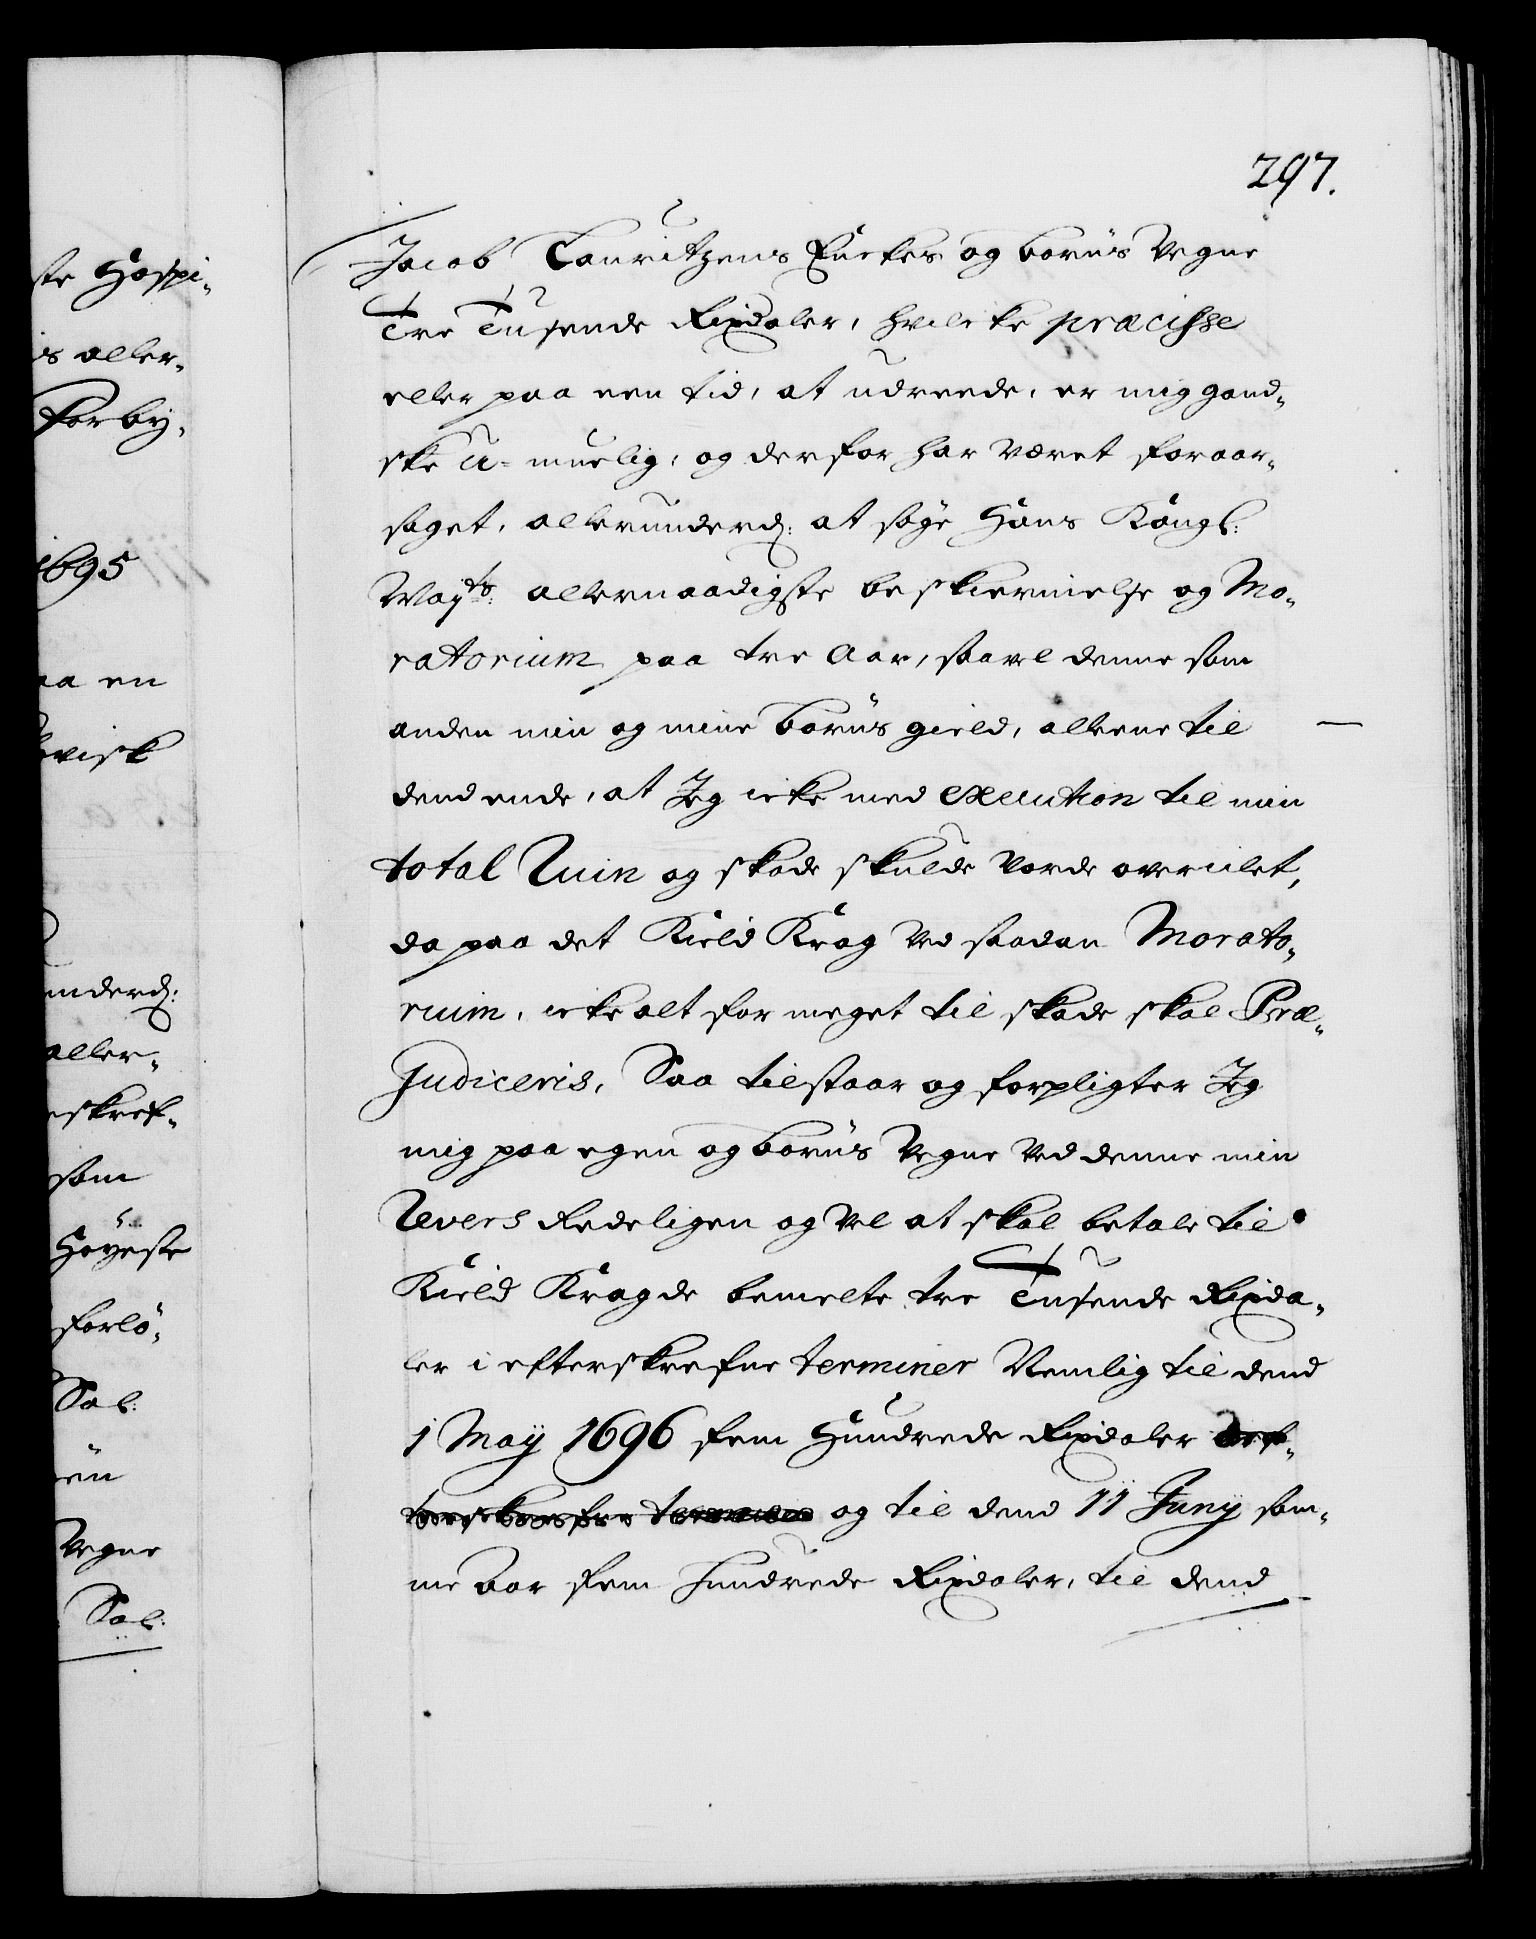 297.
Jacob Lauritzens Enckes og børns Vegne
Tre Tusende Rixdaler, hvilcke præcisse
eller paa een tid, at udreede, er mig gand-
ske U-muelig, og derfor har været foraar-
saget, allerunderd: at søge Hans Kongl:
Mayts: allernaadigste beskiermelse og Mo-
ratorium paa tre Aar, saavel denne som
anden min og mine børns gield, alleene til
dend ende, at Jeg icke med execution til min
total Ruin og skade skulde vorde overilet,
da paa det Kield Krag ved saadan Morato-
rium, icke alt for meget til skade skal Præ-
judiceris, Saa tilstaar og forpligter Jeg
mig paa egen og børns Vegne ved denne min
Revers Redeligen og vel at skal betale til
Kield Krag de bemelte tre Tusende Rixda-
ler i efterskrefne terminer Nemlig til dend
1 Maij 1696 fem Hundrede Rixdaler
og til dend 11 Junij sam-
me Aar fem Hundrede Rixdaler, til dend
ste Hospi-
is aller-
forby-
1695
aa en
underd:
aller-
eskref-
som
Høyeste
forlø-
Sal:
Vegne
Sal: